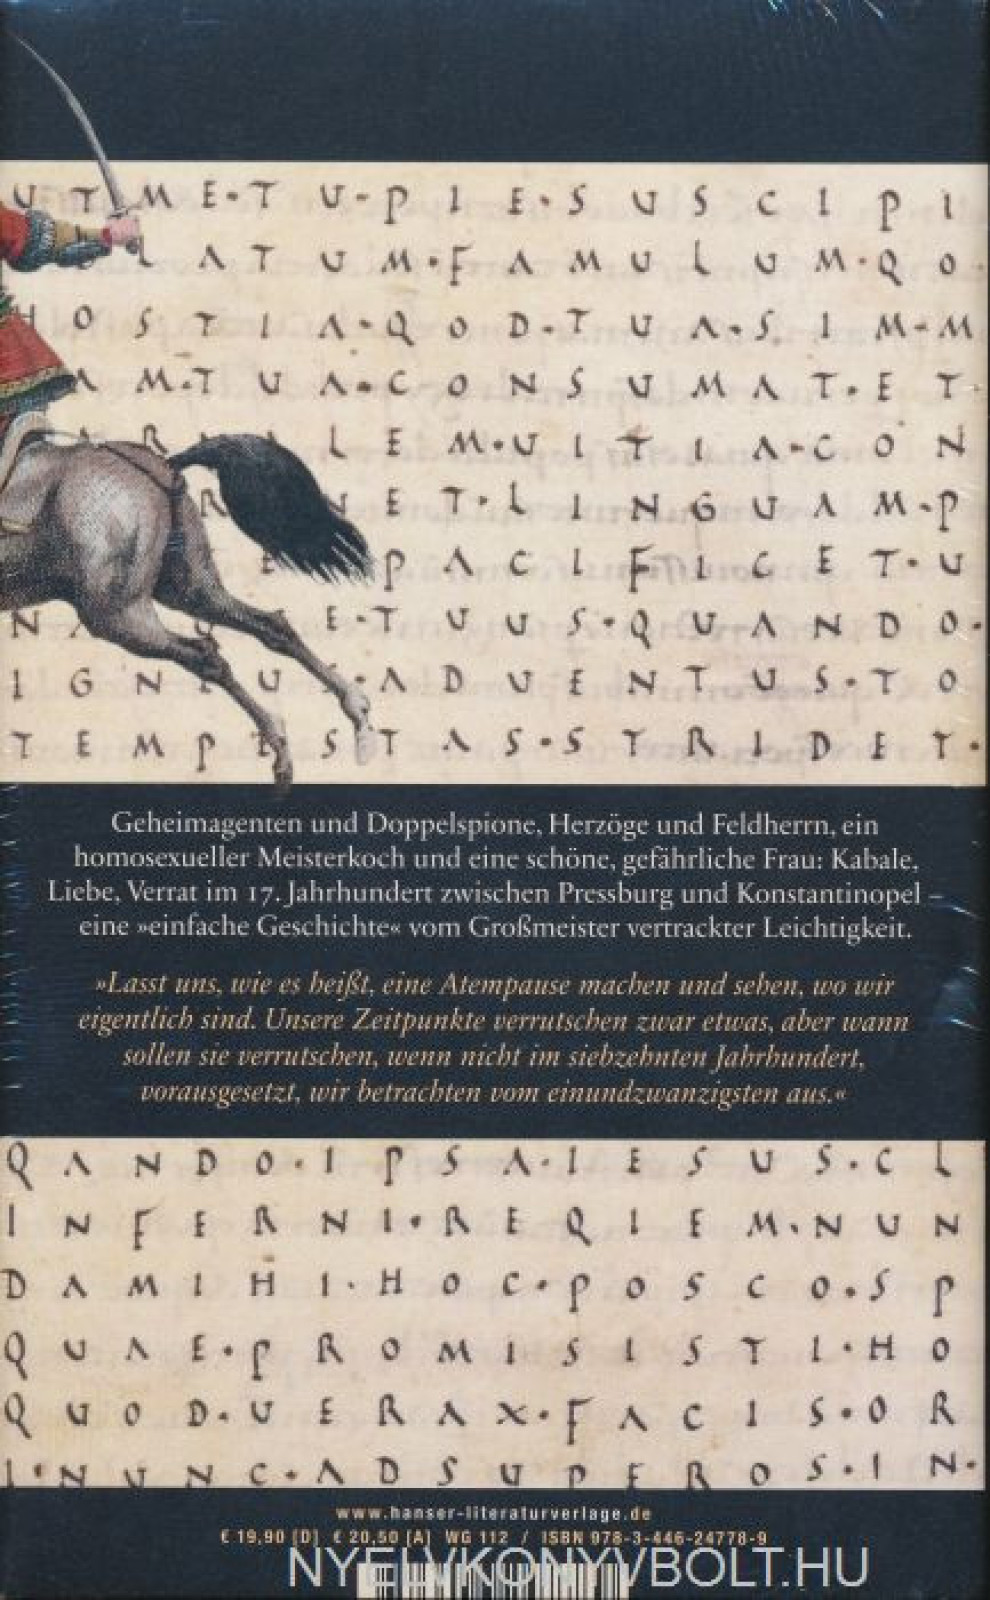 U T M E · T U · P I E · S U S C I P I
L A T U M · F A M U L U M · Q O ·
H O S T I A · Q O D · T U A · S I M · M
A M · T U A · C O N S U M A T · E T
A R L E M · U I T I A · C O N
R N E T · L I N G U A M · P
E P A C I F I C E T · U
N E · T U U S · Q U A N D O ·
I G N U S · A D U E N T U S · T O
T E M P E S T A S · S T R I D E T ·
Geheimagenten und Doppelspione, Herzöge und Feldherrn, ein
homosexueller Meisterkoch und eine schöne, gefährliche Frau: Kabale,
Liebe, Verrat im 17. Jahrhundert zwischen Pressburg und Konstantinopel –
eine »einfache Geschichte« vom Großmeister vertrackter Leichtigkeit.
»Lasst uns, wie es heißt, eine Atempause machen und sehen, wo wir
eigentlich sind. Unsere Zeitpunkte verrutschen zwar etwas, aber wann
sollen sie verrutschen, wenn nicht im siebzehnten Jahrhundert,
vorausgesetzt, wir betrachten vom einundzwanzigsten aus.«
Q A N D O · I P S A · I E S U S · C L
I N F E R N I · R E Q I E M · N U N
D A M I H I · H O C · P O S C O · S P
Q U A E · P R O M I S I S T I · H O
Q U O D · U E R A X · F A C I S · O R
I · N U N C · A D S U P E R O S · I N ·
www.hanser-literaturverlage.de
€ 19,90 [D] € 20,50 [A] WG 112 / ISBN 978-3-446-24778-9
NYELVKONYVBOLT.HU